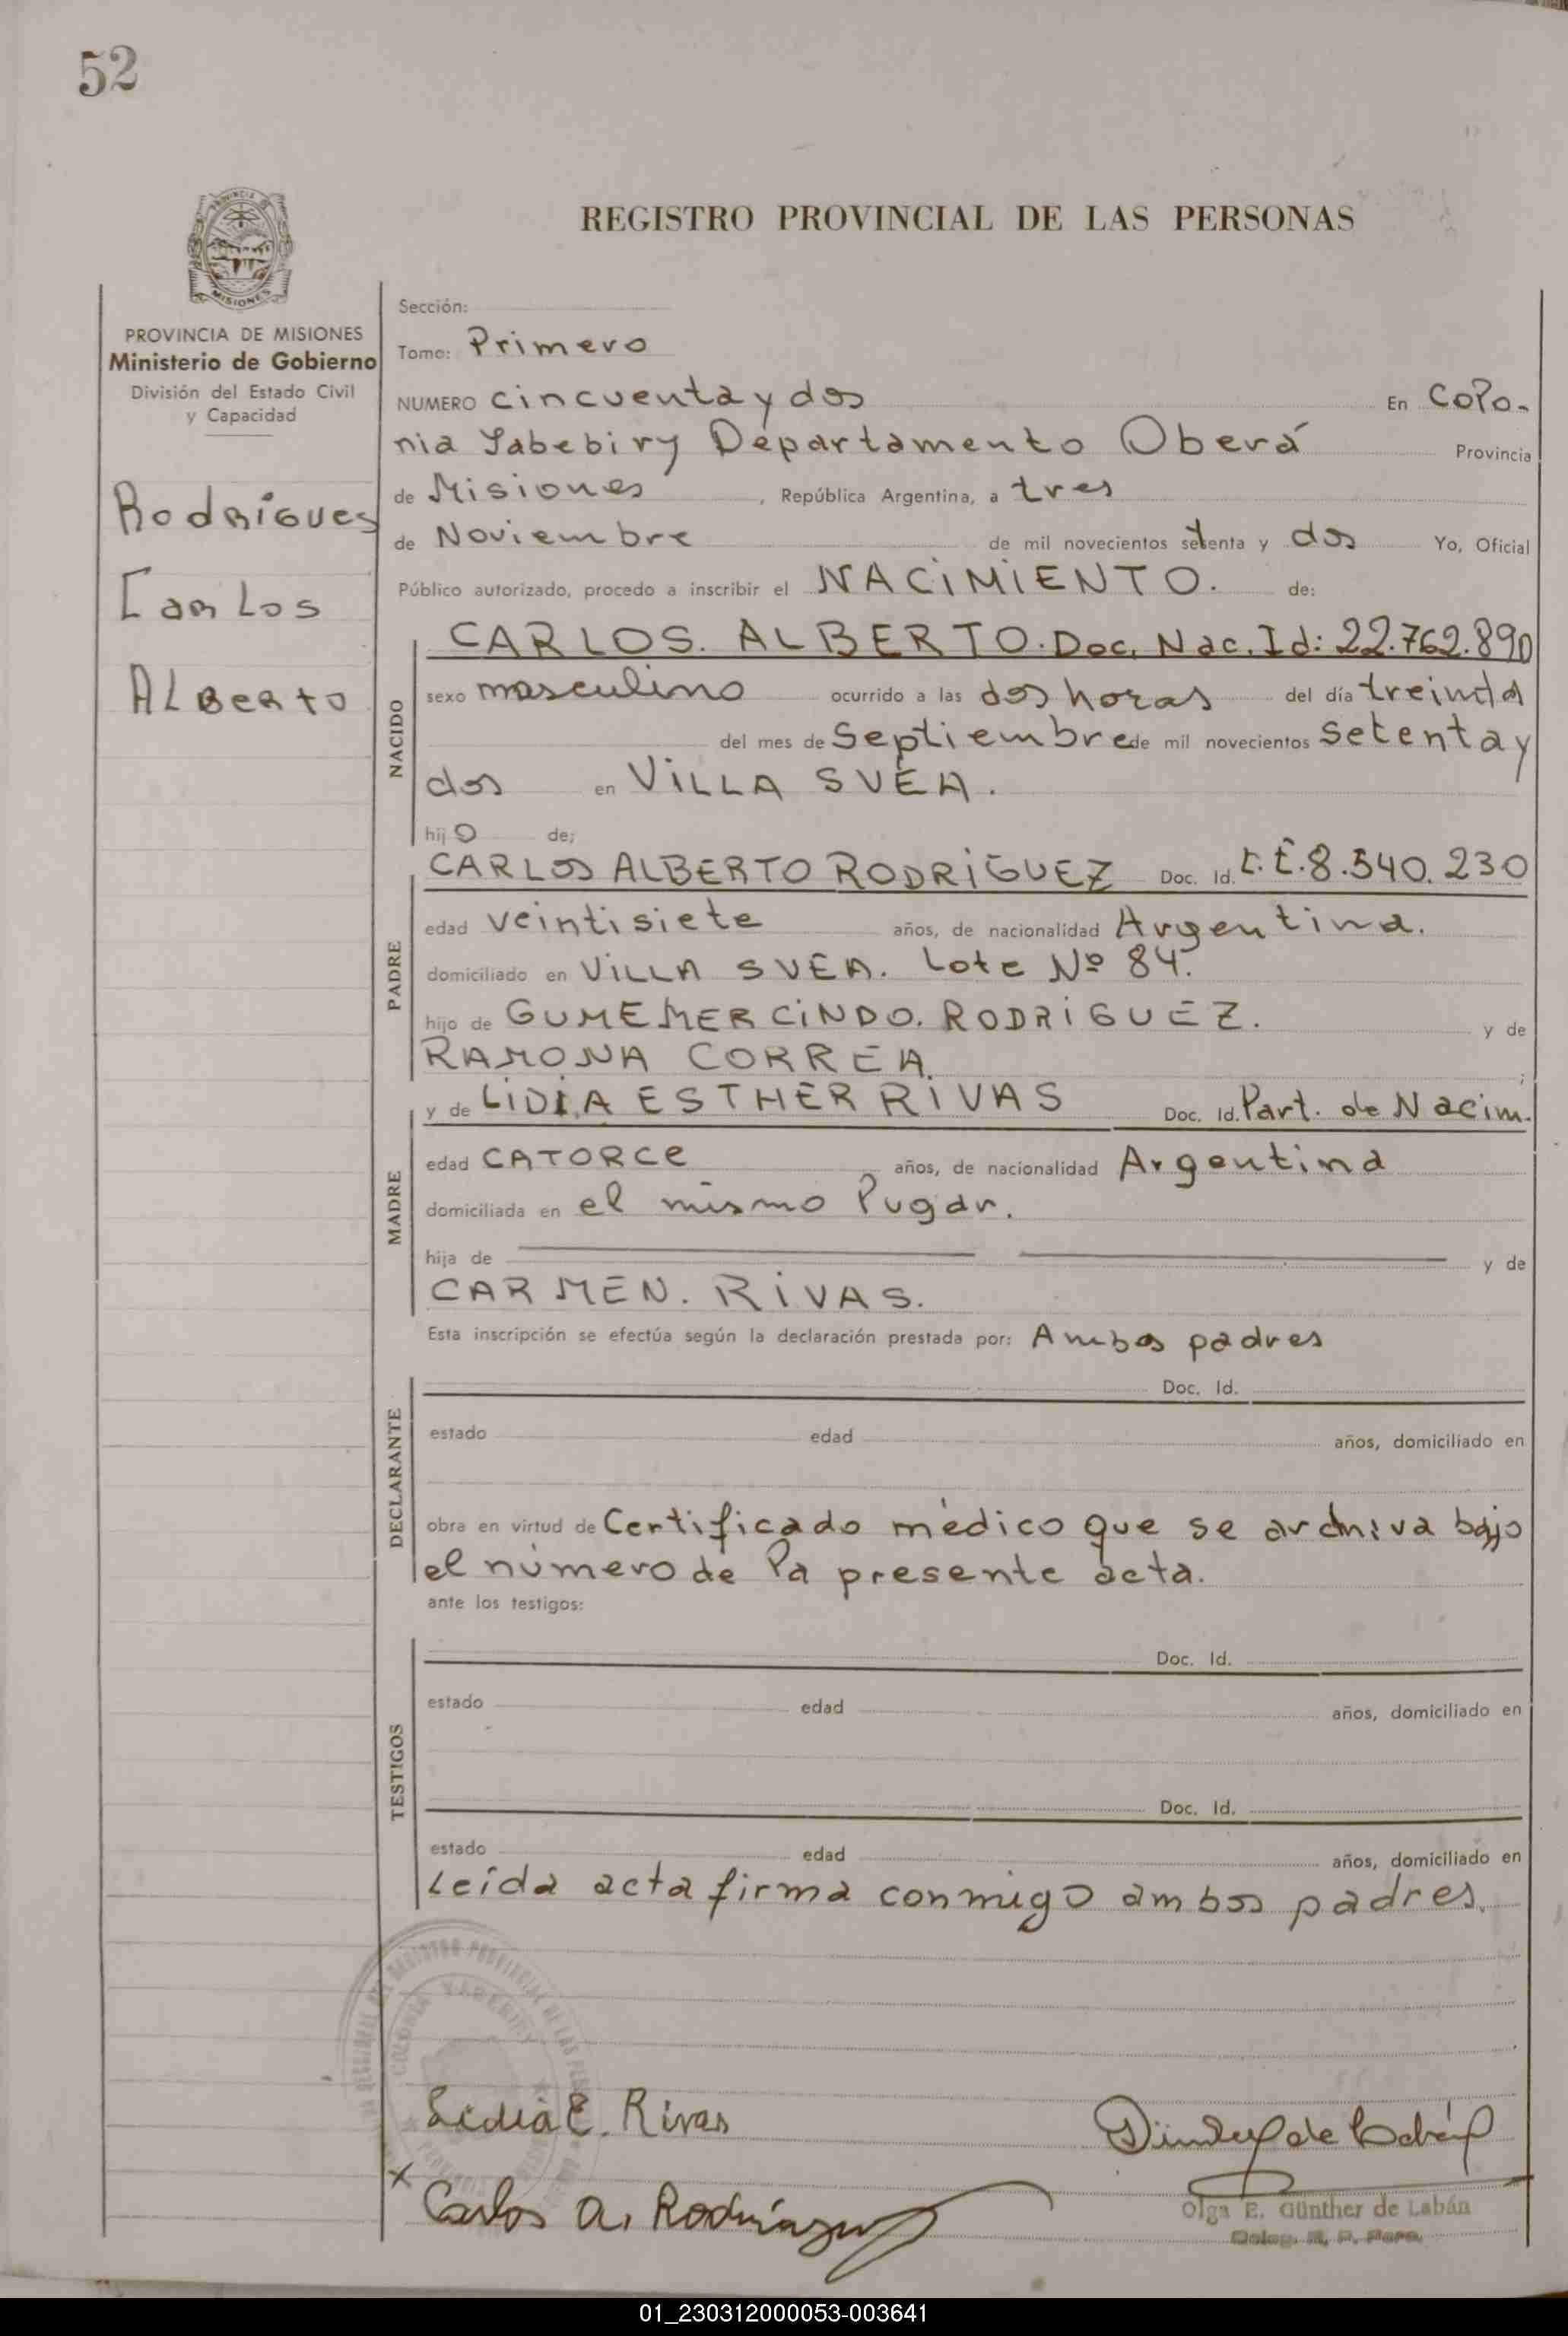 52
REGISTRO PROVINCIAL DE LAS PERSONAS
PROVINCIA
MISIONES
PROVINCIA DE MISIONES
Ministerio de Gobierno
División del Estado Civil
y Capacidad
Rodrigues
Carlos
Alberto
Sección:
Tomo: Primero
NUMERO cincuenta y dos En Colo-
nia Yabebiry Departamento Oberá Provincia
de Misiones , República Argentina, a tres
de Noviembre de mil novecientos setenta y dos Yo, Oficial
Público autorizado, procedo a inscribir el NACIMIENTO. de:
NACIDO
CARLOS. ALBERTO. Doc. Nac. Id: 22.762.890
sexo masculino ocurrido a las dos horas del día treinta
del mes de Septiembre de mil novecientos setenta y
dos en VILLA SVEA.
hijo de;
PADRE
CARLOS ALBERTO RODRIGUEZ Doc. Id. L.E.8.540.230
edad veintisiete años, de nacionalidad Argentina.
domiciliado en VILLA SVEA. Lote Nº 84.
hijo de GUMEMERCINDO. RODRIGUEZ. y de
RAMONA CORREA. ;
MADRE
y de LIDIA ESTHER RIVAS Doc. Id. Part. de Nacim.
edad CATORCE años, de nacionalidad Argentina
domiciliada en el mismo lugar.
hija de y de
CARMEN. RIVAS.
Esta inscripción se efectúa según la declaración prestada por: Ambos padres
DECLARANTE
Doc. Id.
estado edad años, domiciliado en
obra en virtud de Certificado médico que se archiva bajo
el número de la presente acta.
ante los testigos:
TESTIGOS
Doc. Id.
estado edad años, domiciliado en
Doc. Id.
estado edad años, domiciliado en
Leída acta firma conmigo ambos padres.
REGISTRO PROVINCIAL DE LAS
COLONIA YABEBIRY
Lidia E. Rivas
x Carlos A. Rodriguez
de Labán
Olga E. Günther de Labán
Deleg. R. P. Pers.
01_230312000053-003641